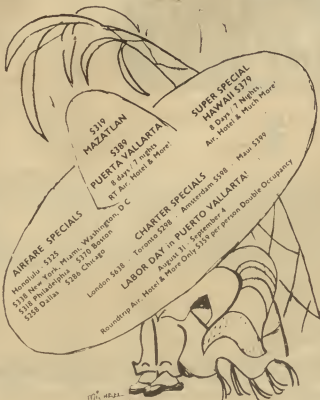 $319
MAZATLAN
$389
PUERTA VALLARTA
8 days / 7 nights
RT Air, Hotel & More!
SUPER SPECIAL
HAWAII $379
8 Days / 7 Nights,
Air, Hotel & Much More!
AIRFARE SPECIALS
Honolulu $325
$338 New York, Miami, Washington, D C
$318 Philadelphia $370 Boston
$258 Dallas $286 Chicago
CHARTER SPECIALS
London $638 Toronto $298 Amsterdam $598 Maui $399
LABOR DAY in PUERTO VALLARTA!
August 31 - September
Roundtrip Air, Hotel & More Only $359 per person Double Occupancy